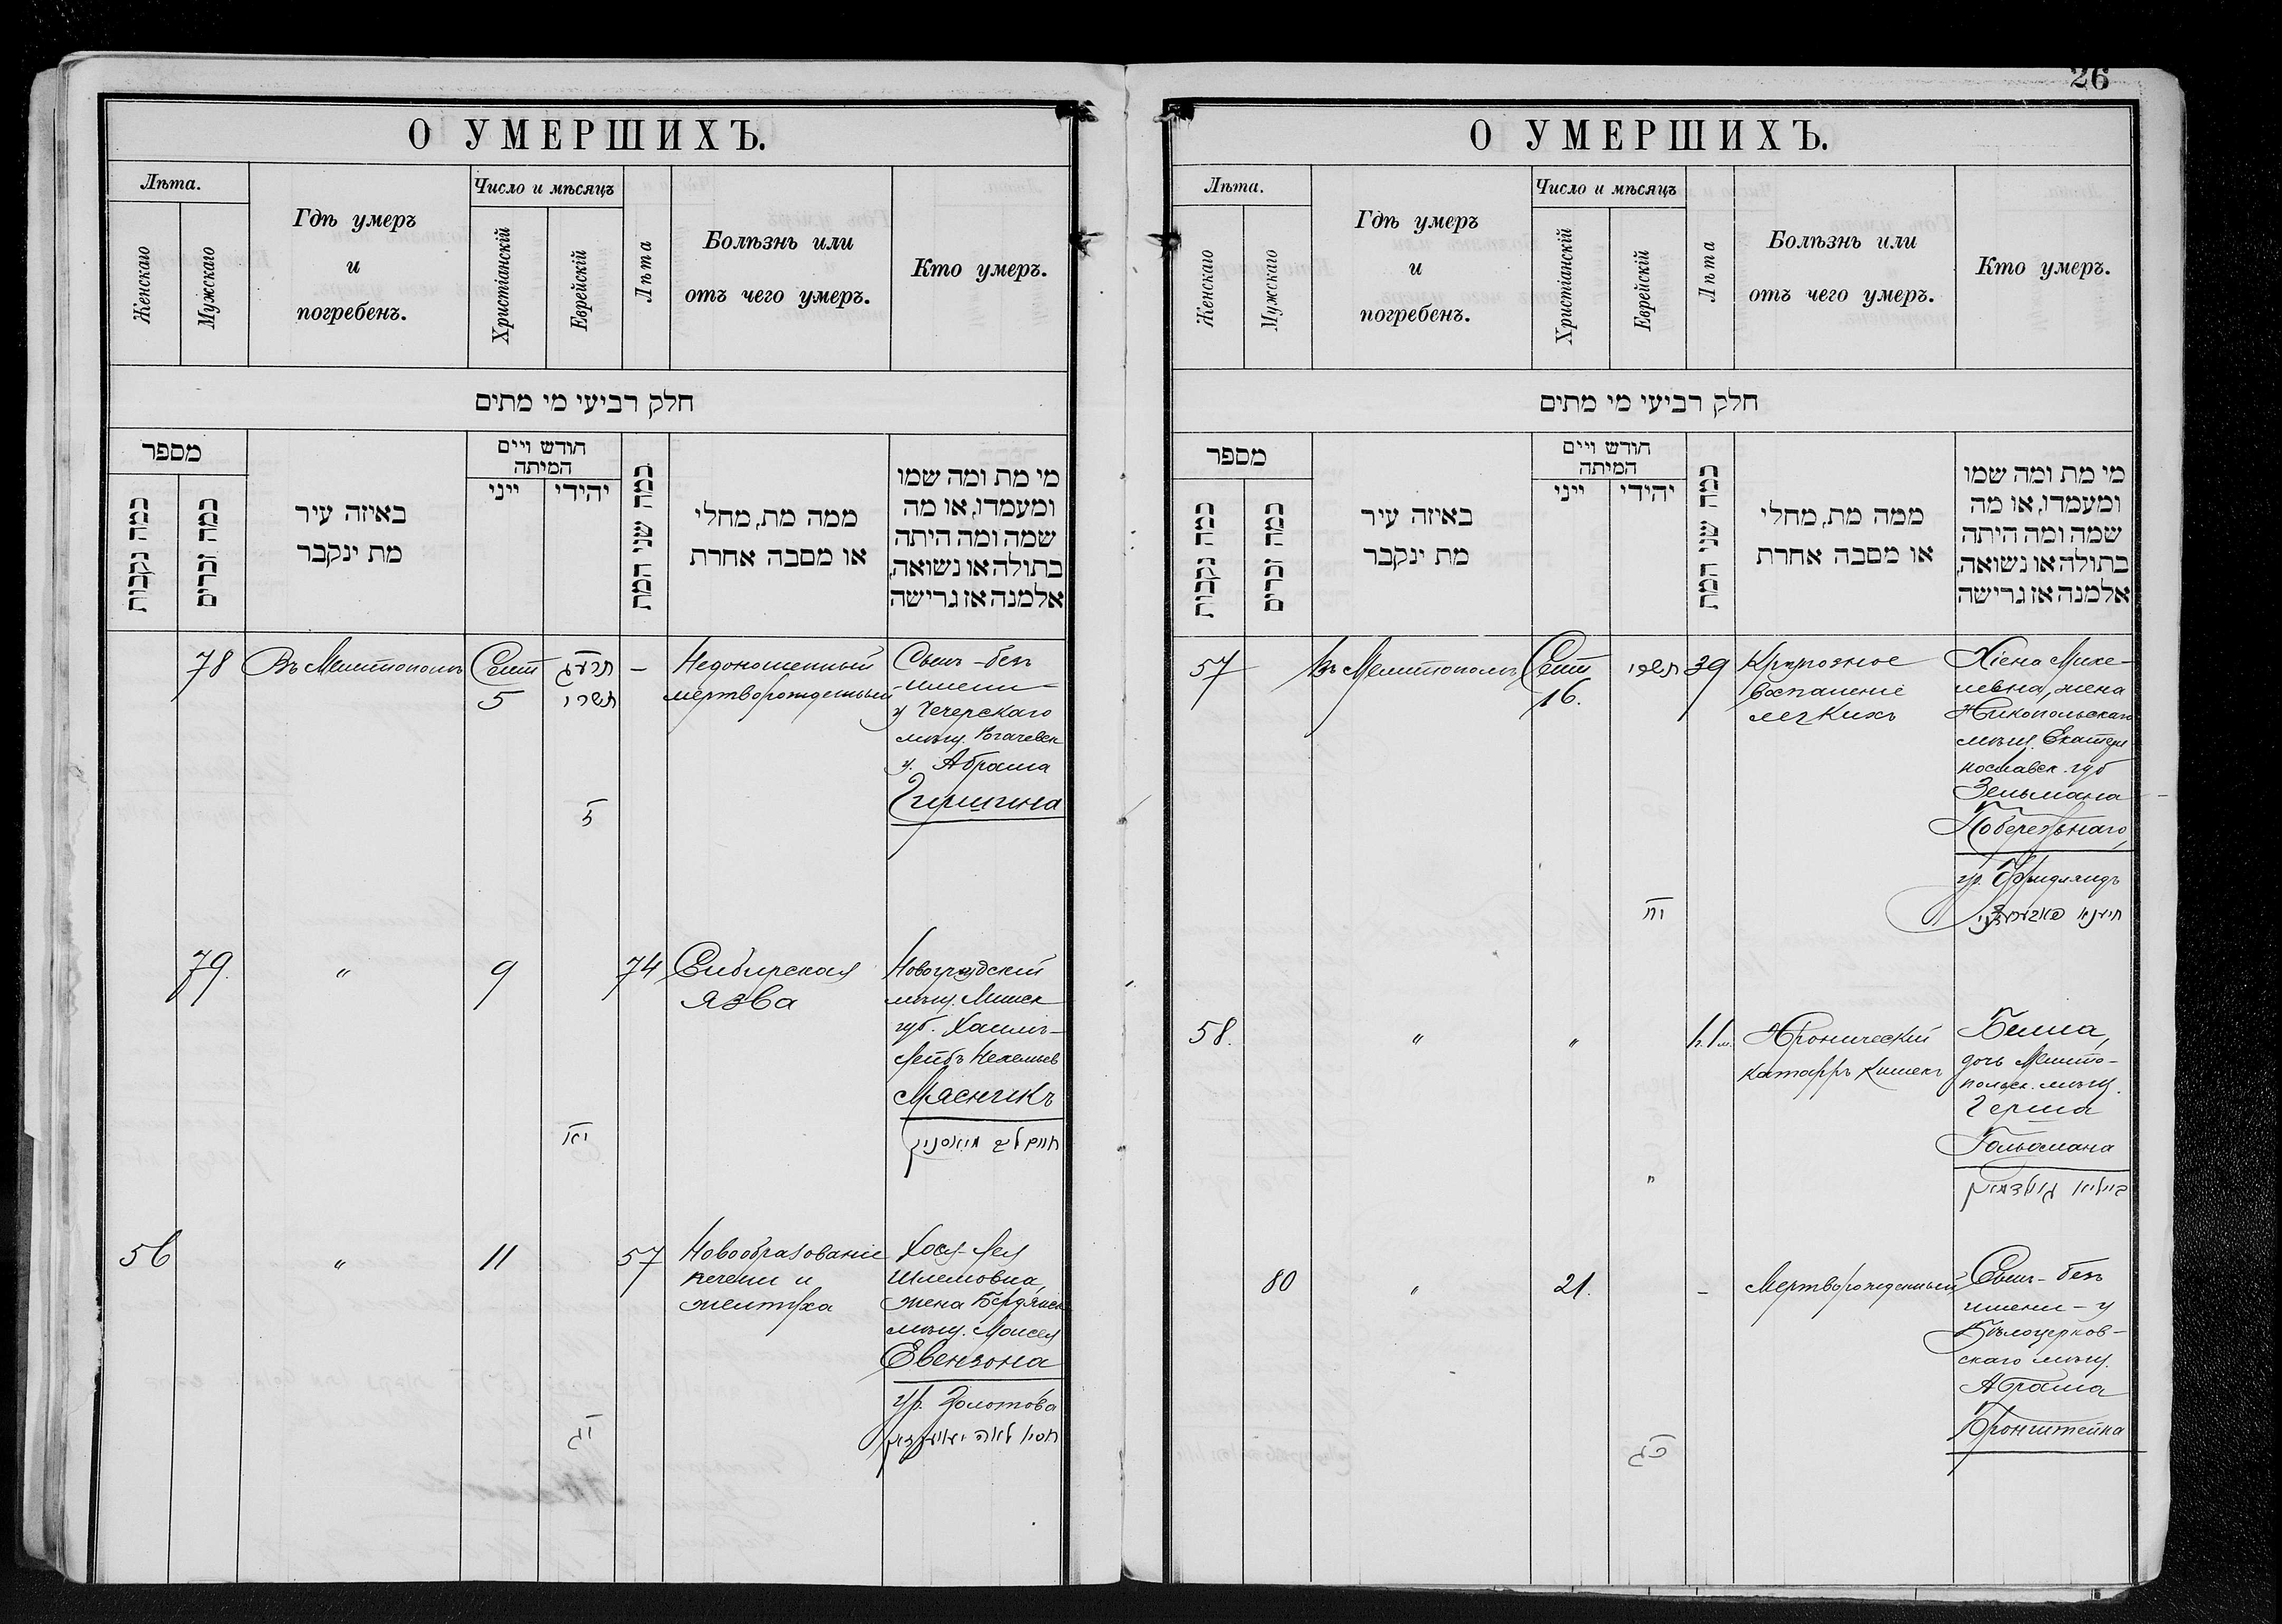 26
О УМЕРШИХЪ.
Лѣта.
Женскаго
Мужскаго
Гдѣ умеръ
и
погребенъ.
Число и мѣсяцъ
Христіанскій
Еврейскій
Лѣта
Болѣзнь или
отъ чего умеръ.
Кто умеръ.
חלק רביעי מי מתים
מספר
כמה נקבות
כמה זכרים
באיזה עיר
מת ינקבר
חודש ויים
המיתה
ייני
יהידי
כמה שני המת
ממה מת, מחלי
או מסבה אחרת
מי מת ומה שמו
ומעמדו, או מה
שמה ומה היתה
בתולה או נשואה,
אלמנה אז גרישה
78
Въ Мелитополѣ
Сент
5
תרעג
תשרי
ה
-
Недоношенный
мертворожденный
Сынъ-безъ
имени-
у Чечерскаго
мѣщ. Рогачевск
у. Абрама
79.
"
9
74
Сибирская
язва
Новогрудскій
мѣщ. Минск
губ. Хаимъ-
Лейбъ
Мясникъ
56
"
11
יג
57
Новообразованіе
печени и
желтуха
Хася-Лея
Шлемовна,
жена Бердянск
мѣщ. Моисея
Евензона
ур. Золотова
О УМЕРШИХЪ.
Лѣта.
Женскаго
Мужскаго
Гдѣ умеръ
и
погребенъ.
Число и мѣсяцъ
Христіанскій
Еврейскій
Лѣта
Болѣзнь или
отъ чего умеръ.
Кто умеръ.
חלק רביעי מי מתים
מספר
כמה נקבות
כמה זכרים
באיזה עיר
מת ינקבר
חודש ויים
המיתה
ייני
יהידי
כמה שני המת
ממה מת, מחלי
או מסבה אחרת
מי מת ומה שמו
ומעמדו, או מה
שמה ומה היתה
בתולה או נשואה,
אלמנה אז גרישה
57
Въ Мелитополѣ
Сент
16.
תשרי
39
Крупозное
воспаленіе
легкихъ
Хіена Михе-
левна, жена
Никопольскаго
мѣщ. Екатери
нославск. губ
Зельмана
Побережьнаго,
ур. Фридляндъ
58.
"
"
"
Хроническій
катарръ кишекъ
Бейла,
дочь Мелито-
польск. мѣщ.
Герша
Гольдмана
80
"
21.
כג
-
Мертворожденный
Сынъ-безъ
имени-у
Бѣлоцерков-
скаго мѣщ.
Абрама
Бронштейна